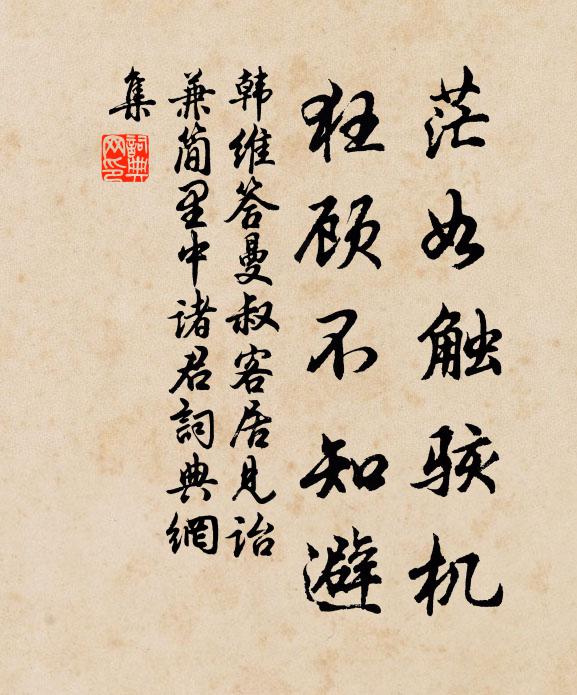 茫如触骇机
狂顾不知避
韩维答曼叔客居见诒
兼简里中诸君詞典網
集
詞典
网印